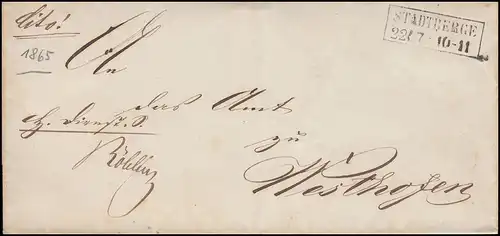 Cito!
STADTBERGE
22 7 10-11
1865
An
das Amt
H. Dienst. S.
zu
Westhofen